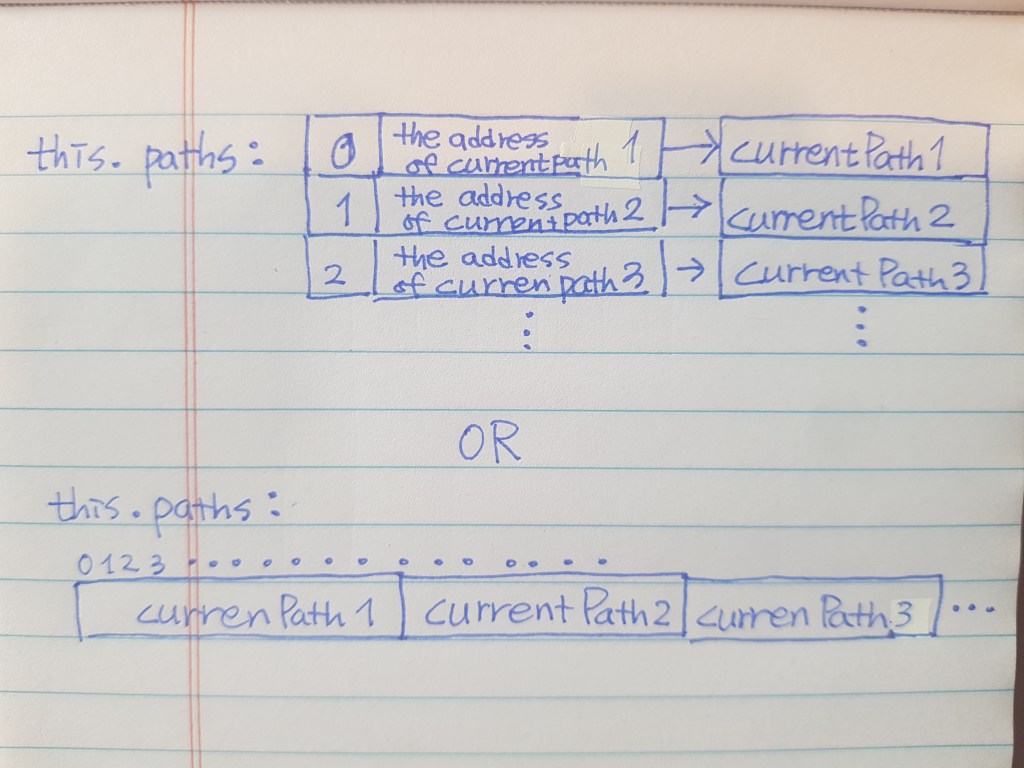 this. paths:
0 the address of currentpath 1 → currentPath 1
1 the address of currentpath 2 → currentPath 2
2 the address of curren path 3 → current Path 3
OR
this. paths:
0 1 2 3 . . . . . . . . . . . . . .
curren Path 1 current Path 2 curren Path 3 ...